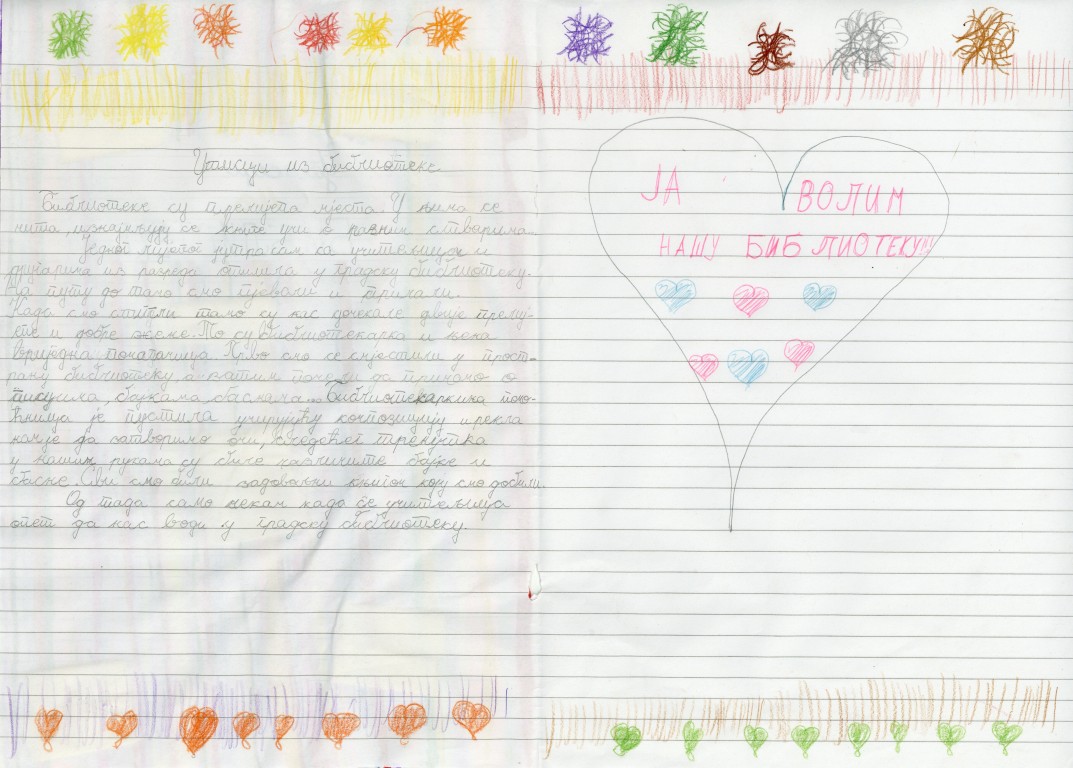 Утисци из библиотеке
Библиотеке су прелијепа мјеста. У њима се
чита, изнајмљују се књиге учи о разним стварима.
Једног лијепог јутра сам са учитељицом и
другарима из разреда отишла у градску библиотеку.
На путу до тамо смо пјевали и причали.
Када смо стигли тамо су нас дочекале двије прелије-
пе и добре жене. То су библиотекарка и њена
вриједна помагачица. Прво смо се смјестили у прост-
рану библиотеку, а затим почели да причамо о
писцима, бајкама, баснама... Библиотекаркина помо-
ћница је пустила умирујућу композицију и рекла
нам је да затворимо очи, следећег тренутка
у нашим рукама су биле различите бајке и
басне. Сви смо били задовољни књигом коју смо добили.
Од тада само чекам када ће учитељица
опет да нас води у градску библиотеку.
ЈА ВОЛИМ
НАШУ БИБЛИОТЕКУ!!!